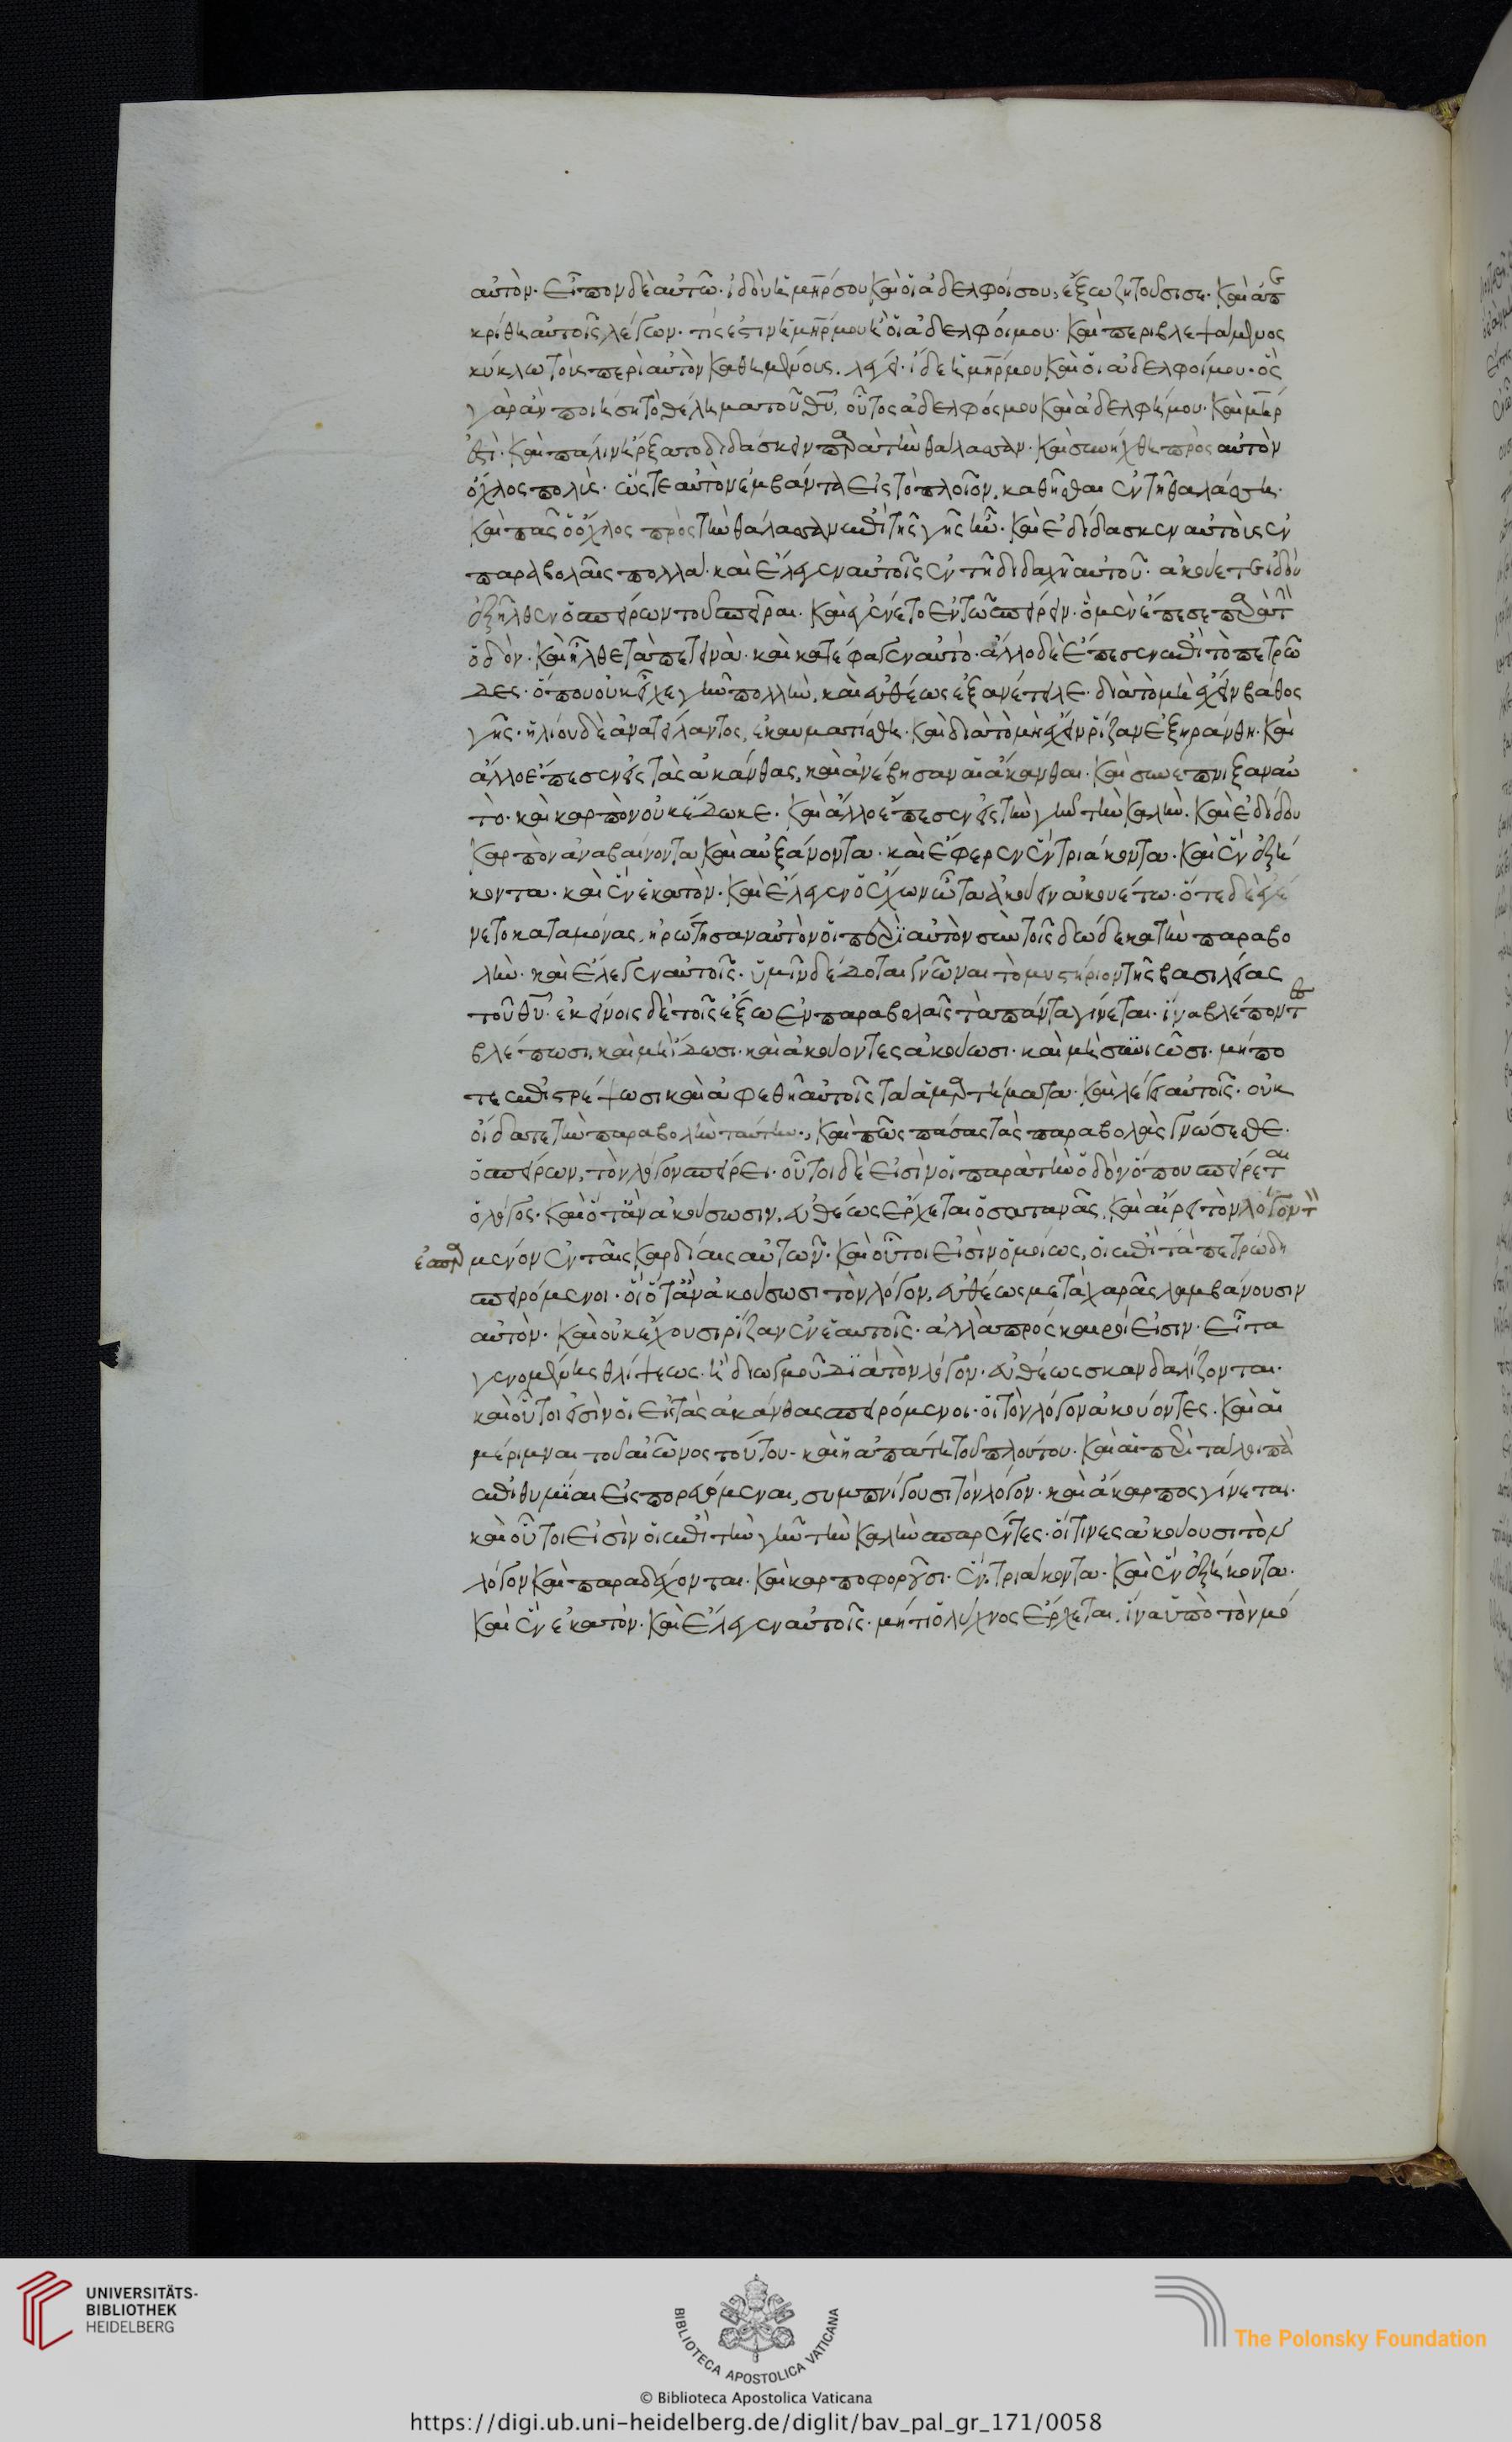 αὐτόν· εἶπον δὲ αὐτῶ· ἰδοὺ ἡ μηρ σου καὶ οἱ ἀδελφοί σου, ἔξω ζητοῦσι σε· καὶ ἀπε
κρίθη αὐτοῖς λέγων· τίς ἐστιν ἡ μηρ μου ἢ οἱ ἀδελφοί μου· καὶ περιβλεψάμενος
κύκλω τοὺς περὶ αὐτὸν καθημένους, λέγει· ἴδε ἡ μηρ μου καὶ οἱ ἀδελφοί μου· ὃς
γὰρ ἂν ποιήση τὸ θέλημα τοῦ θυ, οὗτος ἀδελφός μου καὶ ἀδελφή μου· καὶ μηρ
ἐστί· καὶ πάλιν ἤρξατο διδάσκειν παρὰ τὴν θάλασσαν· καὶ συνήχθη πρὸς αὐτὸν
ὄχλος πολύς· ὥστε αὐτὸν ἐμβάντα εἰς τὸ πλοῖον, καθῆσθαι ἐν τῆ θαλάσση·
καὶ πᾶς ὁ ὄχλος πρὸς τὴν θάλασσαν ἐπὶ τῆς γῆς ἦν· καὶ ἐδίδασκεν αὐτοὺς ἐν
παραβολαῖς πολλά· καὶ ἔλεγεν αὐτοῖς ἐν τῆ διδαχῆ αὐτοῦ· ἀκούετε ἰδοὺ
ἐξῆλθεν ὁ σπείρων τοῦ σπεῖραι· καὶ ἐγένετο ἐν τῶ σπείρειν· ὃ μὲν ἔπεσε παρὰ τὴν
ὁδόν· καὶ ἦλθε τὰ πετεινὰ· καὶ κατέφαγεν αὐτό· ἄλλο δὲ ἔπεσεν ἐπὶ τὸ πετρῶ
δες· ὅπου οὐκ εἶχε γῆν πολλὴν, καὶ εὐθέως ἐξανέτειλε· διὰ τὸ μὴ ἔχειν βάθος
γῆς· ἡλίου δὲ ἀνατείλαντος, ἐκαυματίσθη· καὶ διὰ τὸ μὴ ἔχειν ῥίζαν ἐξηράνθη· καὶ
ἄλλο ἔπεσεν εἰς τὰς ἀκάνθας, καὶ ἀνέβησαν αἱ ἄκανθαι· καὶ συνέπνιξαν αὐ
τὸ· καὶ καρπὸν οὐκ ἔδωκε· καὶ ἄλλο ἔπεσεν εἰς τὴν γῆν τὴν καλήν· καὶ ἐδίδου
καρπὸν ἀναβαίνοντα καὶ αὐξάνοντα· καὶ ἔφερεν ἓν τριάκοντα· καὶ ἓν ἐξή
κοντα· καὶ ἓν ἑκατὸν· καὶ ἔλεγεν ὁ ἔχων ὦτα ἀκούειν ἀκουέτω· ὅτε δὲ ἐγέ
νετο καταμόνας, ἠρώτησαν αὐτὸν οἱ περὶ αὐτὸν σὺν τοῖς δώδεκα τὴν παραβο
λήν· καὶ ἔλεγεν αὐτοῖς· ὑμῖν δέδοται γνῶναι τὸ μυστήριον τῆς βασιλείας
τοῦ θυ· ἐκείνοις δὲ τοῖς ἔξω ἐν παραβολαῖς τὰ πάντα γίνεται· ἵνα βλέποντες
βλέπωσι, καὶ μὴ ἴδωσι· καὶ ἀκούοντες ἀκούωσι· καὶ μὴ συνιῶσι· μήπο
τε ἐπιστρέψωσι καὶ ἀφεθῆ αὐτοῖς τὰ ἁμαρτήματα· καὶ λέγει αὐτοῖς· οὐκ
οἴδατε τὴν παραβολὴν ταύτην, καὶ πῶς πάσας τὰς παραβολὰς γνώσεσθε·
ὁ σπείρων, τὸν λόγον σπείρει· οὗτοι δὲ εἰσὶν οἱ παρὰ τὴν ὁδὸν ὅπου σπείρεται
ὁ λόγος· καὶ ὅταν ἀκούσωσιν, εὐθέως ἔρχεται ὁ σατανᾶς, καὶ αἴρει τὸν λόγον τὸν
ἐσπαρ μένον ἐν ταῖς καρδίαις αὐτῶν· καὶ οὗτοι εἰσὶν ὁμοίως, οἱ ἐπὶ τὰ πετρώδη
σπειρόμενοι· οἳ ὅταν ἀκούσωσι τὸν λόγον, εὐθέως μετὰ χαρᾶς λαμβάνουσιν
αὐτὸν· καὶ οὐκ ἔχουσι ῥίζαν ἐν ἑαυτοῖς· ἀλλὰ πρόσκαιροί εἰσιν· εἶτα
γενομένης θλίψεως· ἢ διωγμοῦ διὰ τὸν λόγον· εὐθέως σκανδαλίζονται·
καὶ οὗτοι εἰσὶν οἱ εἰς τὰς ἀκάνθας σπειρόμενοι· οἱ τὸν λόγον ἀκούοντες· καὶ αἱ
μέριμναι τοῦ αἰῶνος τούτου· καὶ ἡ ἀπάτη τοῦ πλούτου· καὶ αἱ περὶ τὰ λοιπὰ
ἐπιθυμίαι εἰσπορευόμεναι, συμπνίγουσι τὸν λόγον· καὶ ἄκαρπος γίνεται·
καὶ οὗτοι εἰσὶν οἱ ἐπὶ τὴν γῆν τὴν καλὴν σπαρέντες· οἵτινες ἀκούουσι τὸν
λόγον καὶ παραδέχονται· καὶ καρποφοροῦσι· ἓν τριάκοντα· καὶ ἓν ἐξήκοντα·
καὶ ἓν ἑκατὸν· καὶ ἔλεγεν αὐτοῖς· μήτι ὁ λύχνος ἔρχεται, ἵνα ὑπὸ τὸν μό
UNIVERSITÄTS-
BIBLIOTHEK
HEIDELBERG
BIBLIOTECA APOSTOLICA VATICANA
The Polonsky Foundation
© Biblioteca Apostolica Vaticana
https://digi.ub.uni-heidelberg.de/diglit/bav_pal_gr_171/0058